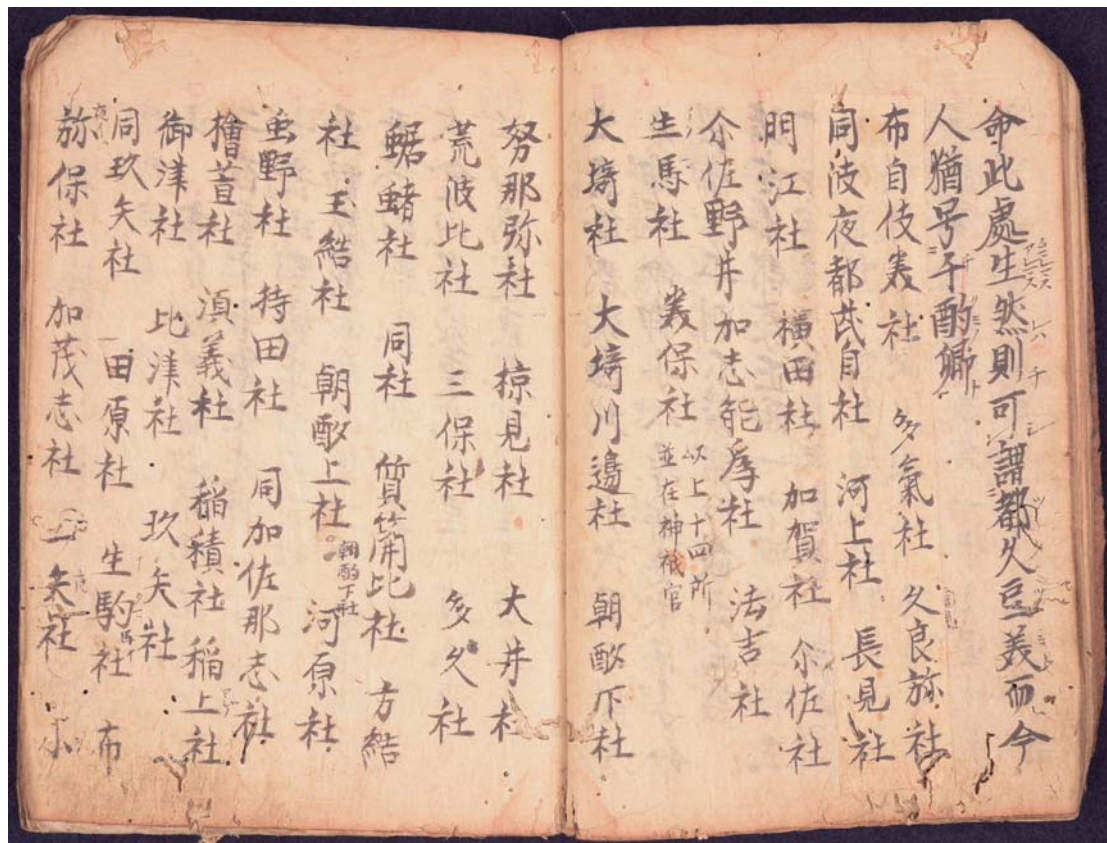 命此處生然則可謂都久豆美而今
人猶号千酌郷
布自伎美社 多氣社 久良弥社
同波夜都武自社 河上社 長見社
門江社 横田社 加賀社 尒佐社
尒佐野井加志能為社 法吉社
生馬社 美保社 以上十四所
並在神祇官
大埼社 大埼川邊社 朝酌下社
努那弥社 椋見社 大井社
荒波比社 三保社 多久社
蜛蝫社 同社 質簡比社 方結
社 玉結社 朝酌上社 朝酌下社 河原社
虫野社 持田社 同加佐那志社
檜萱社 湏義社 稲積社 稲上社
御津社 比津社 玖夫社
同玖夫社 田原社 生馬社 布
弥保社 加茂志社 一夫社 尓